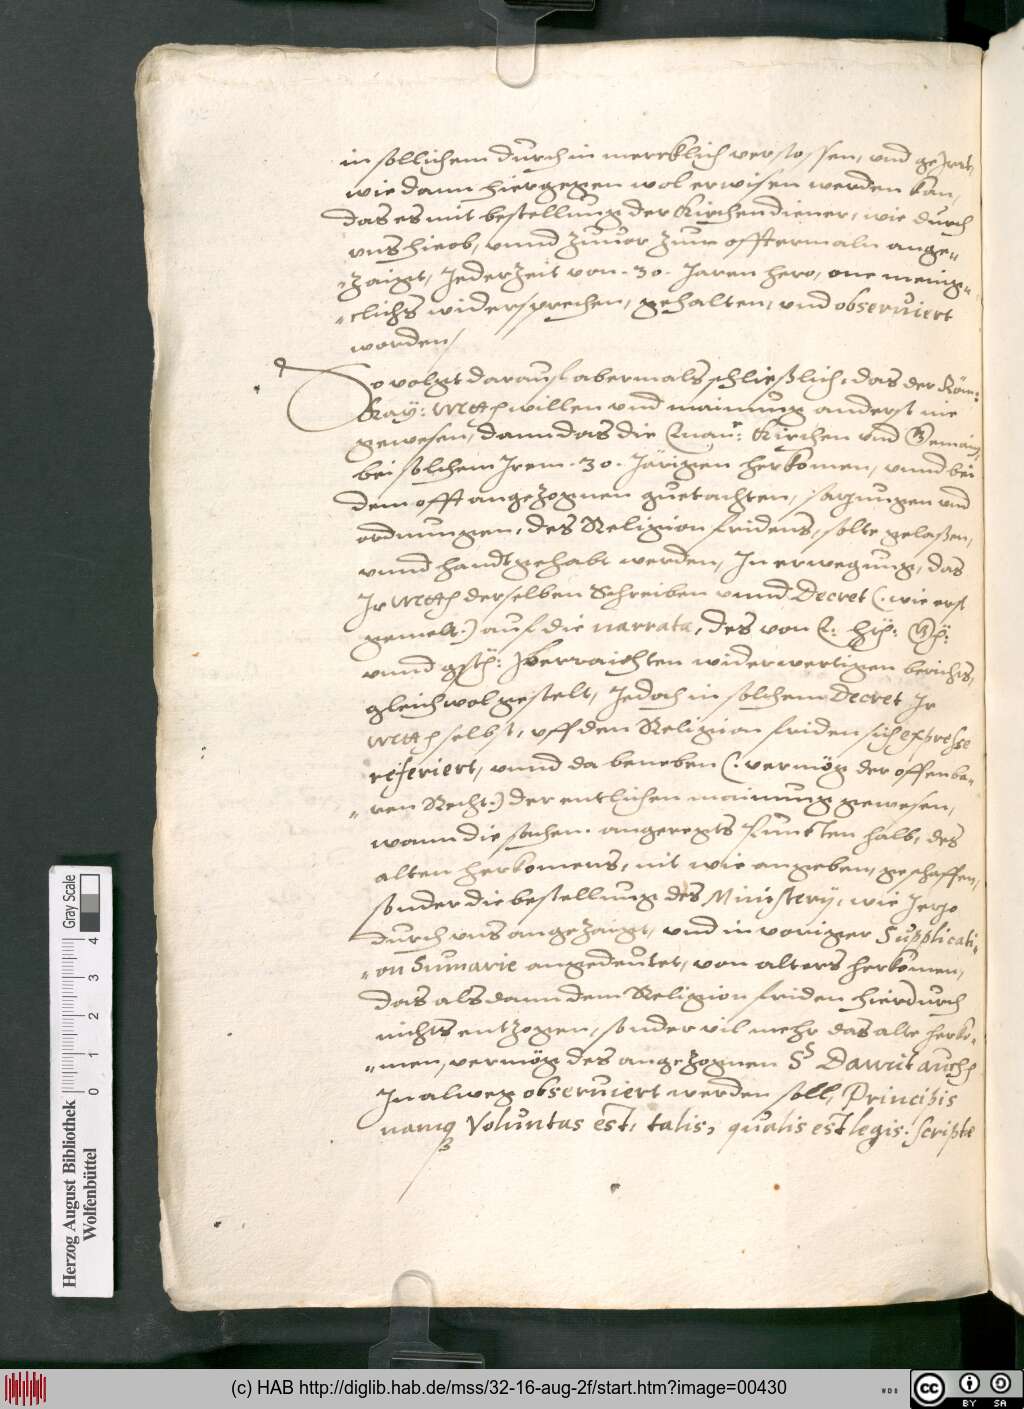 in sollichem durch in mercklich verstossen, vnd geJrrt,
wie dann hiergegen wol erwisen werden kan,
das es mit bestellung der Kirchendiener, wie durch
vns hieob, vnnd zuuor zum offtermaln ange„
„zaigt, Jederzeit von .30. Jaren hero, one menig„
„clichs widersprechen, gehalten, vnd obseruiert
worden,
So volgt darauß abermals schließlich, das der Röm:
Kay: Mtt willen vnd mainung anderst nie
gewesen, dann das die Kirchen vnd Gemain,
bei solchem Jrem .30. Järigen herkomen, vnnd bei
dem offt angezognen guetachten, satzungen vnd
ordnungen, des Religion fridens, solte gelaßen,
vnnd handtgehabt werden, In erwegung, das
Jr Mtt derselben Schreiben vnnd Decret (. wie erst
gemelt.) auf die narrata, des von
vnnd vberraichten widerwertigen berichts,
gleichwol gestelt, Jedoch in solchem Decret Jr
Mtt selbst, vff den Religion friden sich expresse
referiert, vnnd da beneben (. vermög der offenba„
„ren Recht.) der entlichen mainung gewesen,
wann die sachen angeregts puncten halb, des
alten herkomens, nit wie angeben, geschaffen,
sonder die bestellung des Ministerij, wie Jetzo
durch vns angezaigt, vnd in voriger Supplicati„
„on Sumarie angedeutet, von alters herkomen,
das alsdann dem Religion friden hierdurch
nichts entzogen, sonder vil mehr das alte herko„
„men, vermög des angezognen auch
In alweg obseruiert werden soll, Principis
namq Voluntas est, talis, qualis est legis scripte
Herzog August Bibliothek
Wolfenbüttel
0 1 2 3 4
Gray Scale
(c) HAB http://diglib.hab.de/mss/32-16-aug-2f/start.htm?image=00430
WDB
cc BY SA